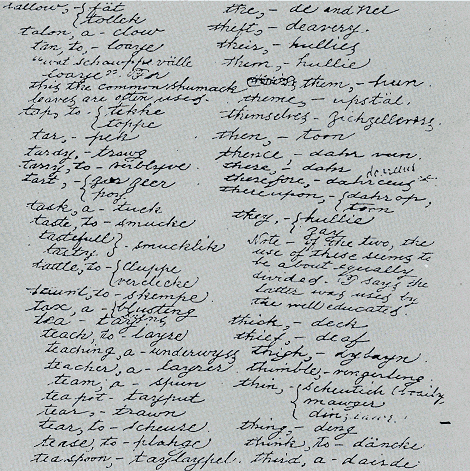 tallow, - { fât
{ tollek
talon, a - clow
tan, to, - loaye
"wat schawppe välle
loaye". For
this the common shumack
leaves are often used.
tap, to - { tekke
{ toppe
tar, - pek
tardy, - trawg
tarry, to - virblyve
tart, - { zeer
{ poy
task, a - tuck
taste, to - smucke
tastefull }
tasty } - smucklik
tattle, to - { cluppe
{ verclecke
taunt, to - skempe
tax, a -
tea -
teach, to - layre
teaching, a - underwyss
teacher, a - layrer
team, a - spun
tea pot - tayput
tear, - trawn
tear, to - scheuse
tease, to - plahge
teaspoon, - taylaypel
the, - de and het
theft, - deavery.
their, - hullies
them, - hullie
them, - hun.
theme, - upstäl.
themselves - zichzellevers
then, - toon
thence - dahr van.
there, - dahr
therefore, - dahr
thereupon, - { dahr op,
{ toon
they, - { hullie
{ zay
Note - of the two, the
use of these seems to
be about equally
divided. D says the
latter was used by
the well educated.
thick, - deck
thief, - deaf
thigh, - dybayn.
thimble, - vingerling
thin, - {
{ mawger
{ din
thing, - ding
think, to - däncke
third, a - dairde